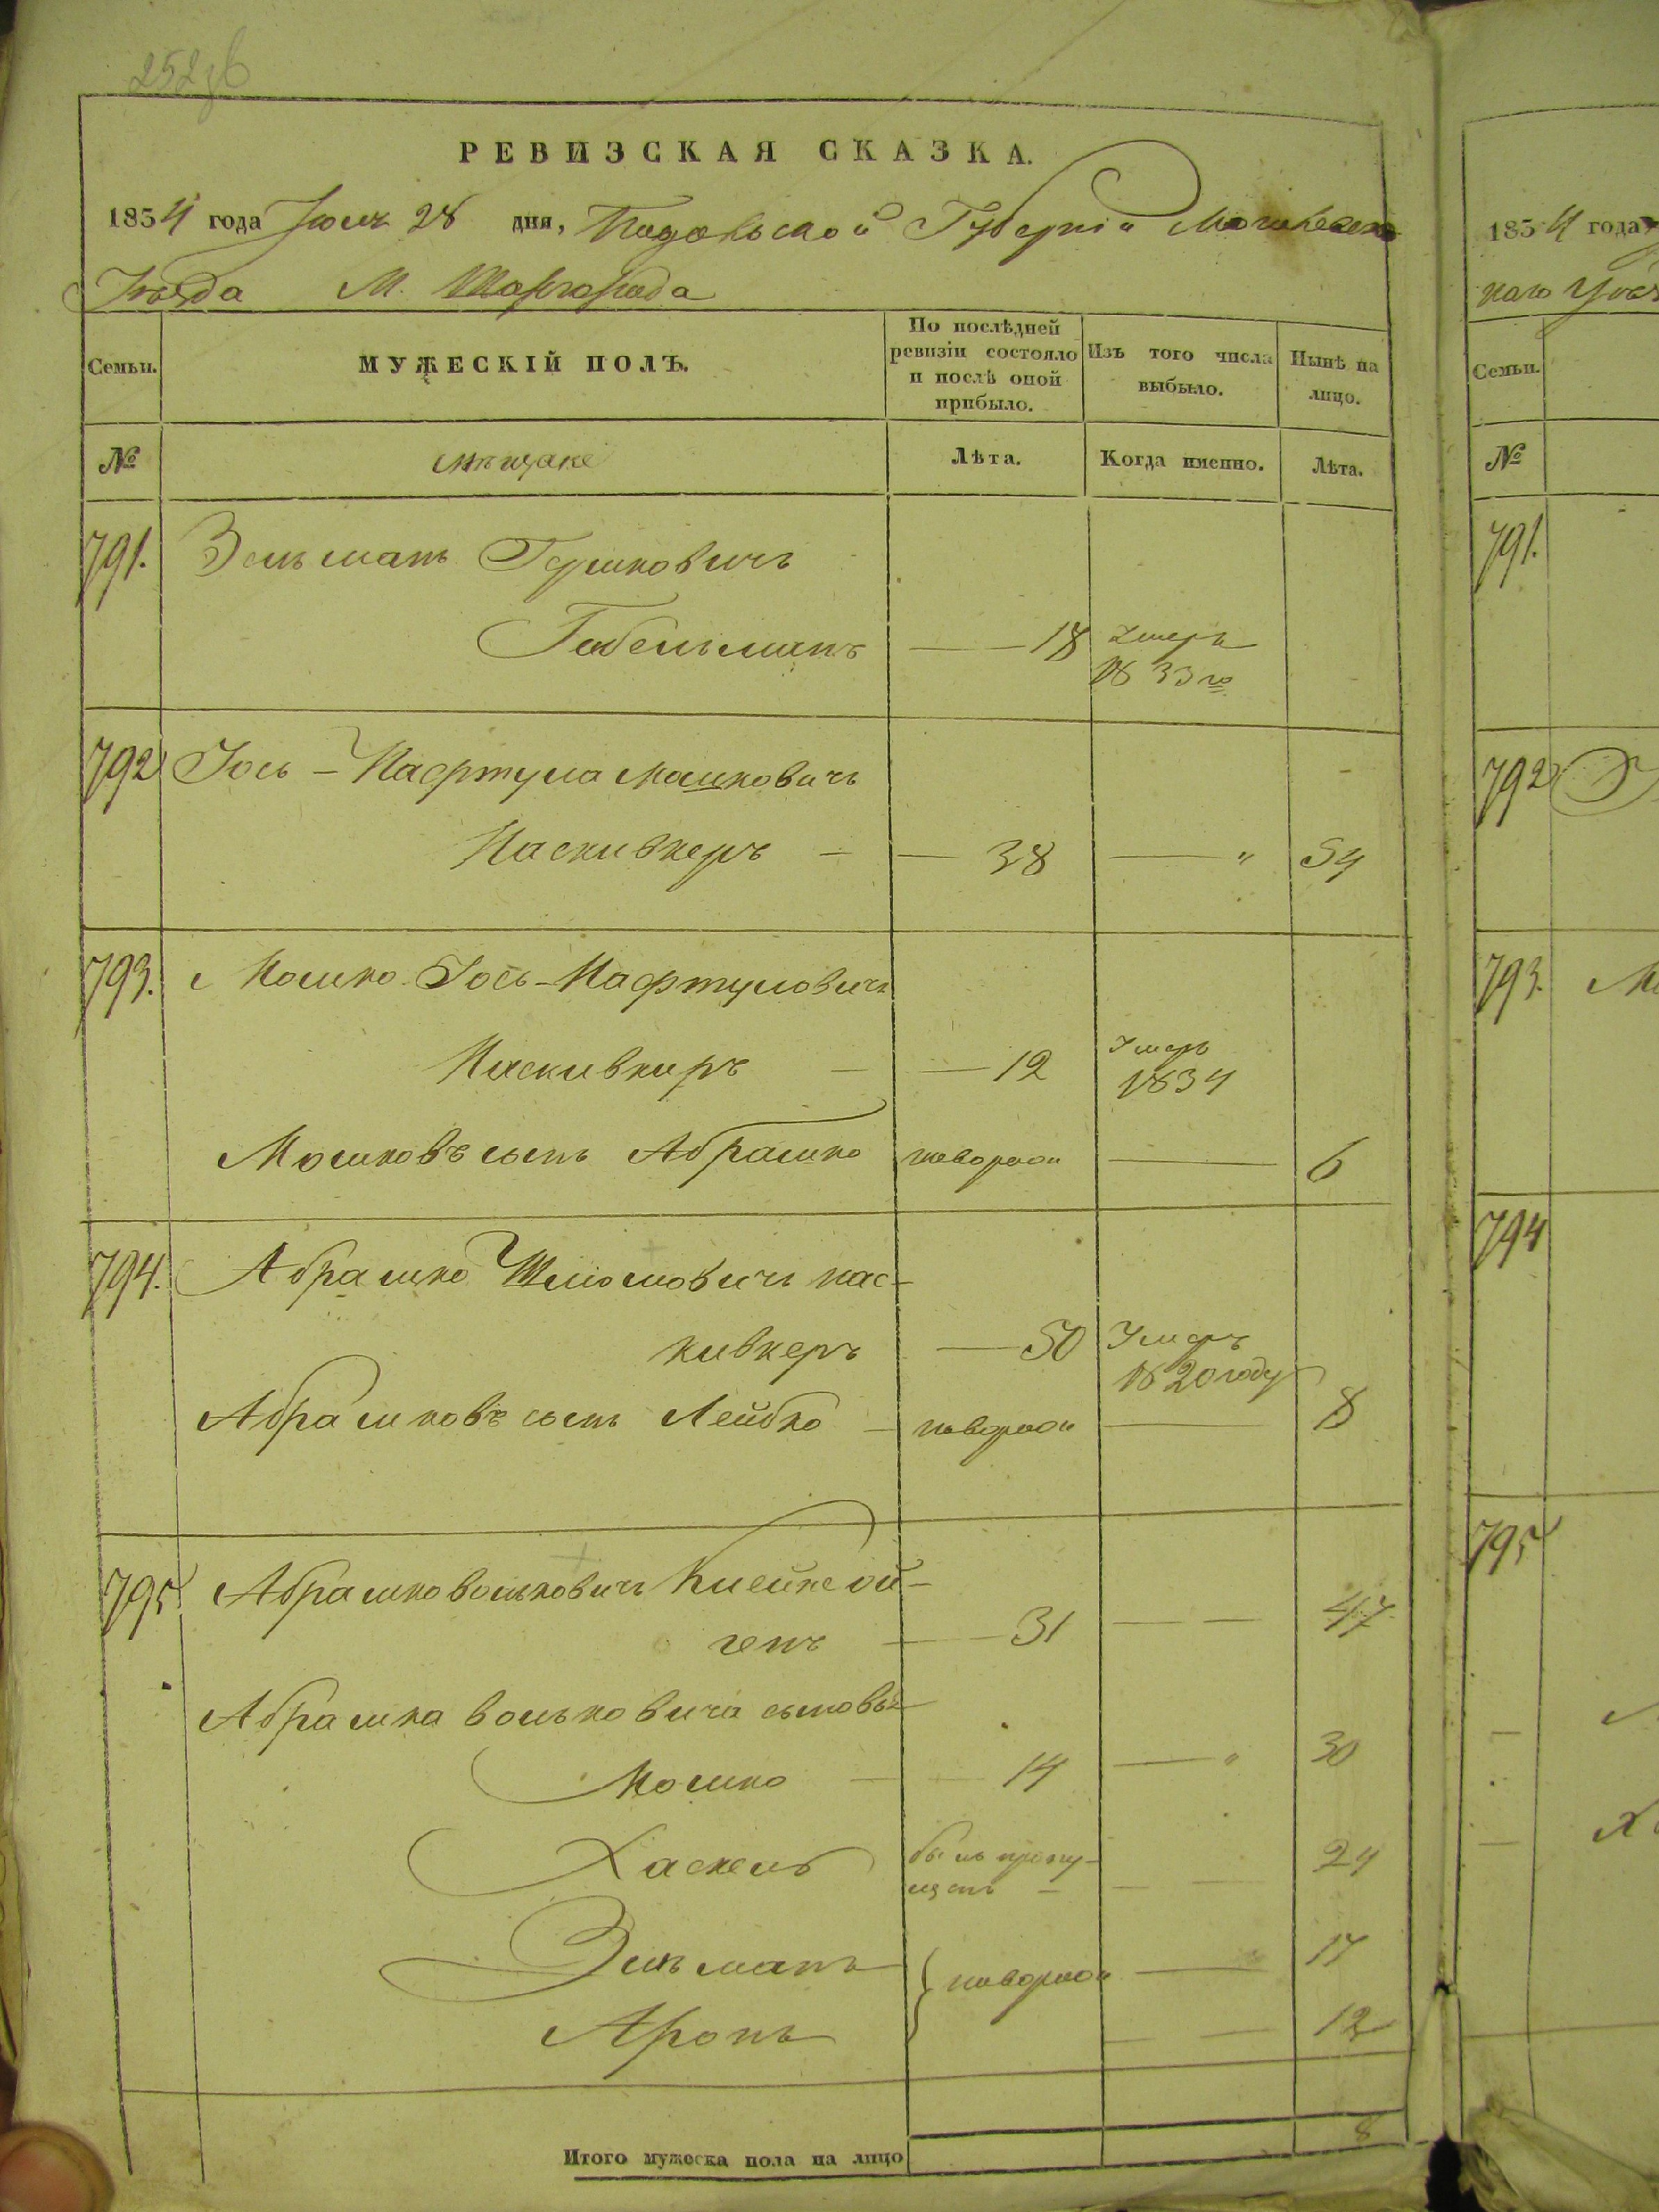 252 об
РЕВИЗСКАЯ СКАЗКА.
1854 года Июля 28 дня, Подольской Губерніи Могилевского
Уѣзда М. Шаргорода
Семьи. МУЖЕСКІЙ ПОЛЪ. По послѣдней ревизіи состояло и послѣ оной прибыло. Изъ того числа выбыло. Нынѣ на лицо.
№ мѣщане Лѣта. Когда именно. Лѣта.
791. Зельманъ Гершковичъ
Габельманъ 18 Умеръ
1833 го
792 Іось-Нафтула Мошковичъ
Паскивкеръ 38 — " 54
793. Мошко Іось-Нафтуловичъ
Паскивкеръ 12 Умеръ
1834
Мошковъ сынъ Абрашко новорож — 6
794. Абрашко Шліомовичъ Пас-
кивкеръ 50 Умеръ
1820 году
Абрашковъ сынъ Лейбко новорож — 8
795 Абрашко Вольковичъ Клейной-
генъ 31 — 47
Абрашка Вольковича сыновья
Мошко 14 — " 30
Хаскель былъ пропу-
щенъ — 24
Зильманъ новорож — 17
Аронъ — 12
Итого мужеска пола на лицо 8
1854 года
каго Уѣз
Семьи.
№
791.
792
793.
794
795